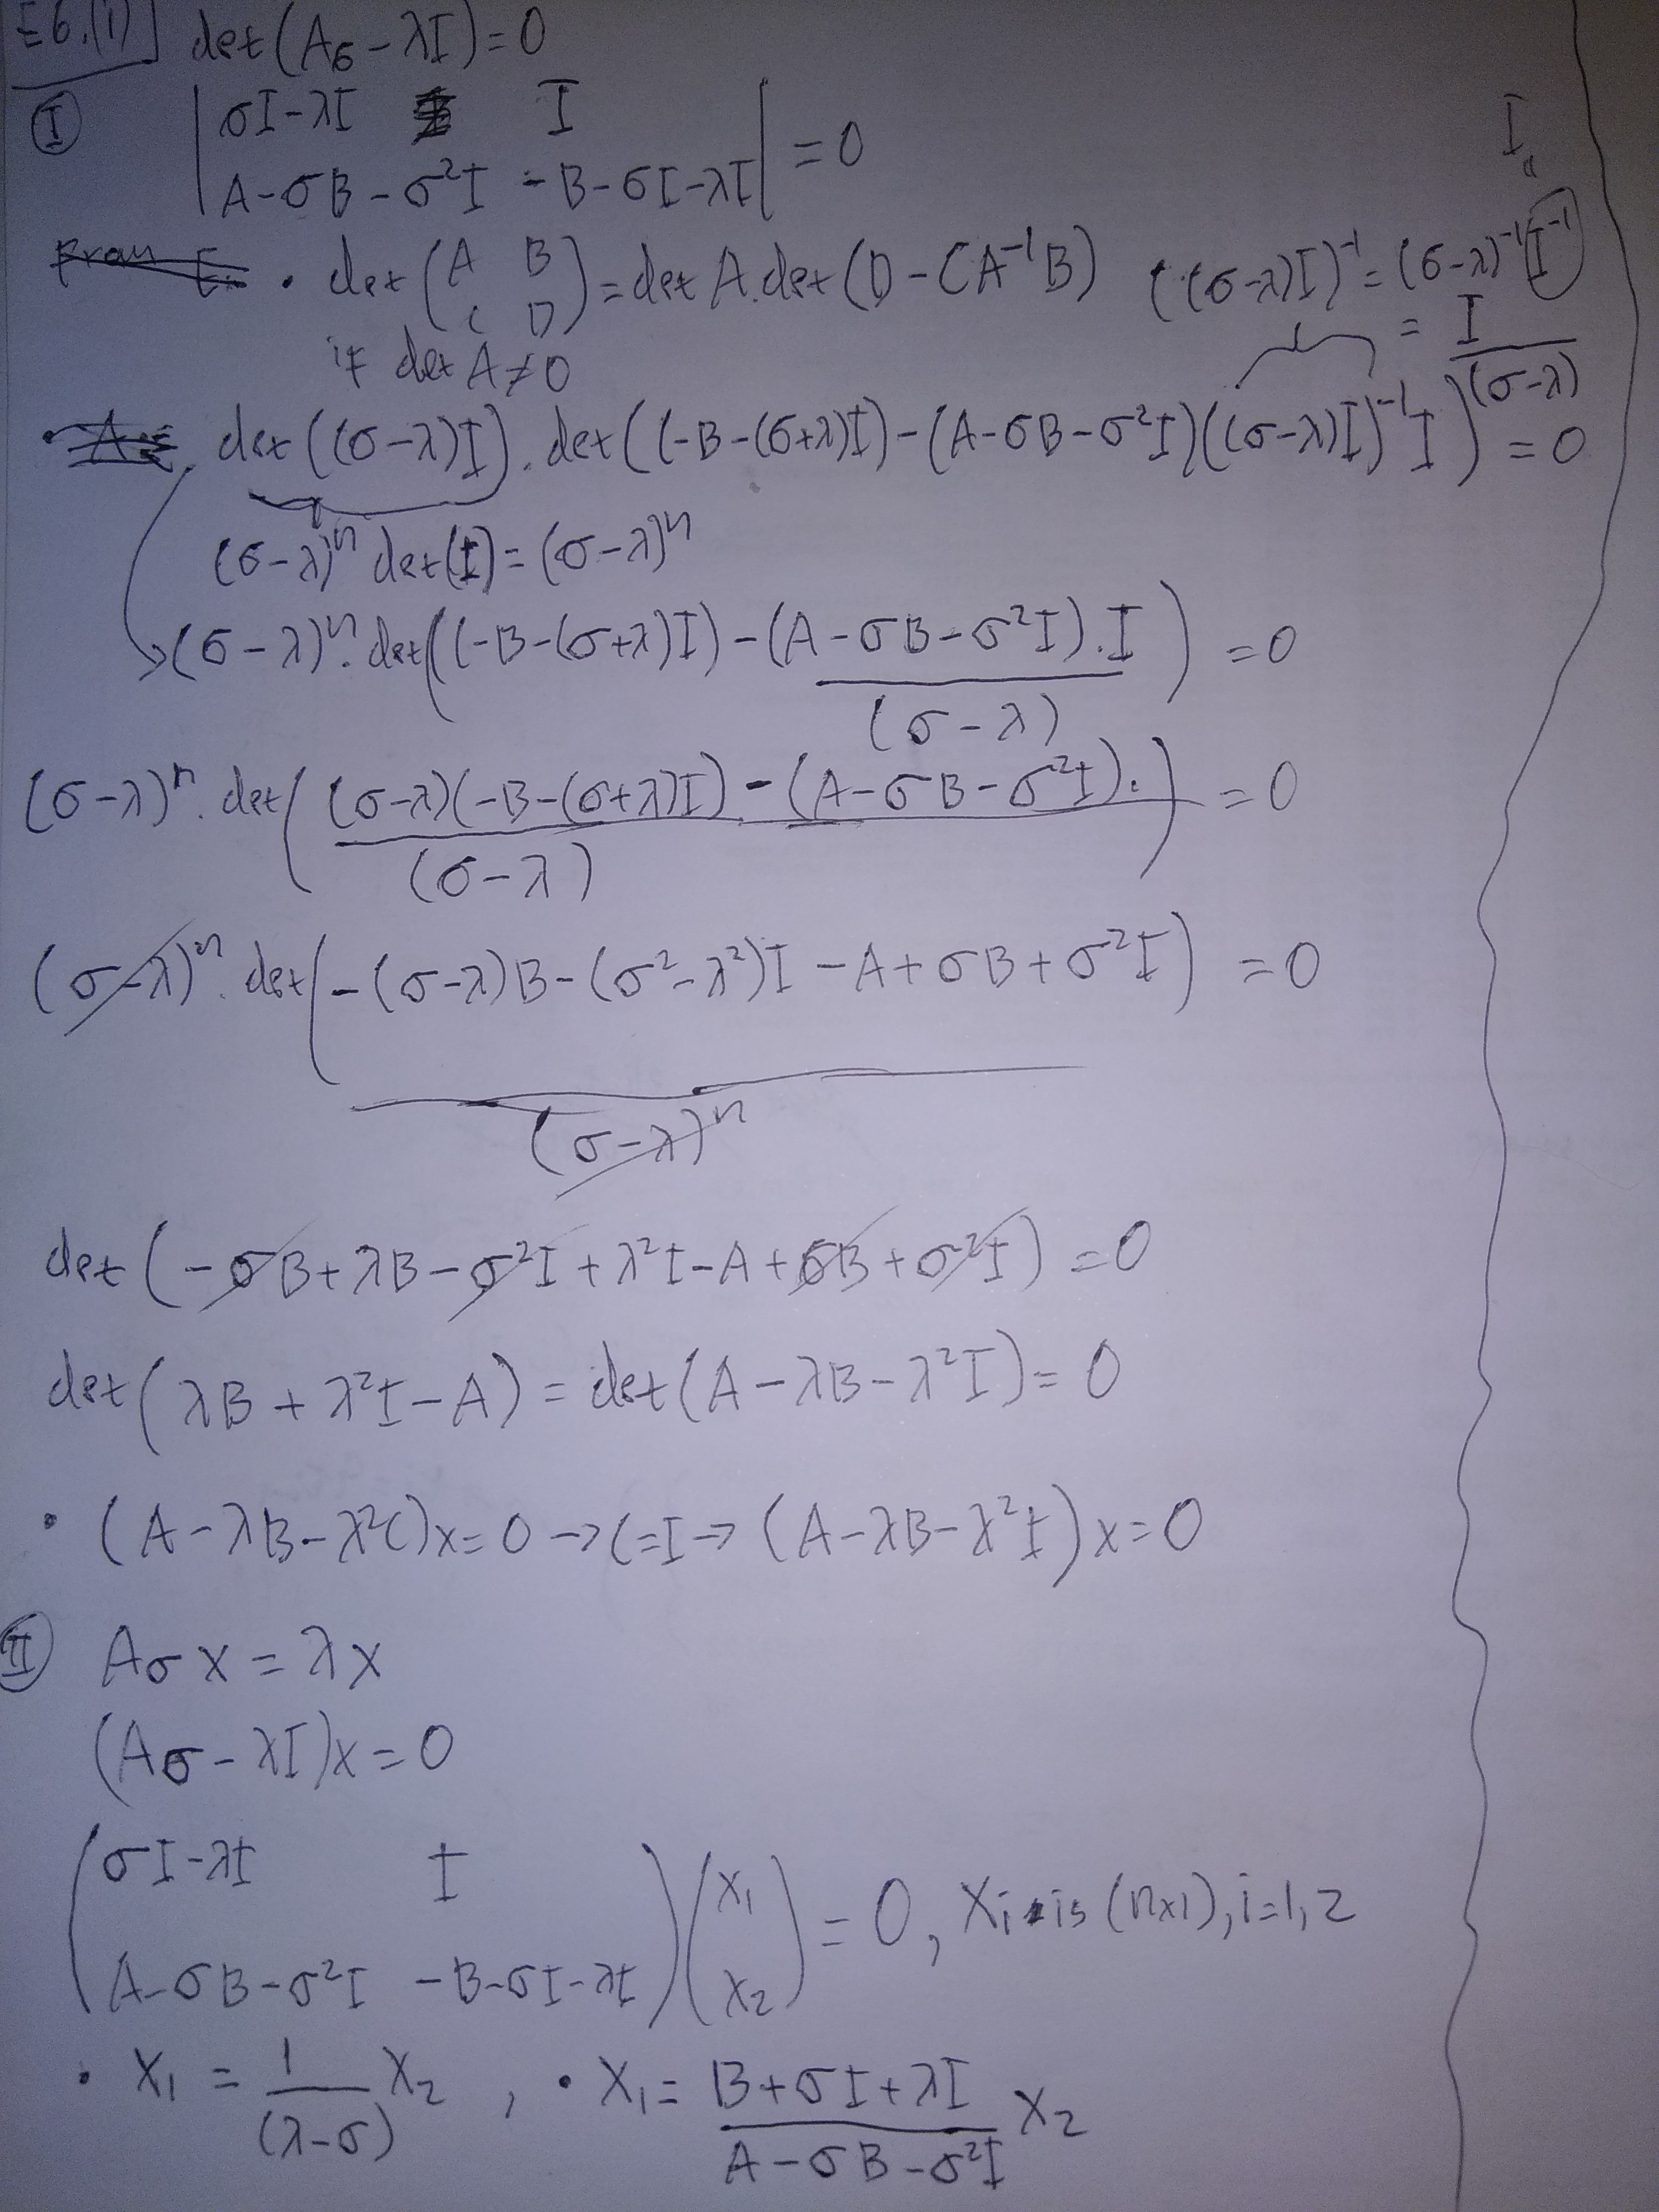 E6.(1)] det(A₆ - λI) = 0
Ⓘ | σI-λI I |
| A-σB-σ²I -B-σI-λI | = 0
I
From E. • det (A B
C D) = det A.det(D-CA⁻¹B) ((σ-λ)I)⁻¹ = (σ-λ)⁻¹ I⁻¹
if det A ≠ 0 = I/(σ-λ)
• det((σ-λ)I).det((-B-(σ+λ)I)-(A-σB-σ²I)((σ-λ)I)⁻¹I) = 0
(σ-λ)ⁿ det(I) = (σ-λ)ⁿ
(σ-λ)ⁿ.det((-B-(σ+λ)I)-(A-σB-σ²I).I/(σ-λ)) = 0
(σ-λ)ⁿ.det((σ-λ)(-B-(σ+λ)I)-(A-σB-σ²I)./(σ-λ)) = 0
(σ-λ)ⁿ.det(-(σ-λ)B-(σ²-λ²)I-A+σB+σ²I) = 0
(σ-λ)ⁿ
det(-σB+λB-σ²I+λ²I-A+σB+σ²I) = 0
det(λB+λ²I-A) = det(A-λB-λ²I) = 0
• (A-λB-λ²C)x=0 → C=I → (A-λB-λ²I)x=0
Ⅱ Aσ x = λx
(Aσ-λI)x=0
(σI-λI I
A-σB-σ²I -B-σI-λI)(x₁
x₂) = 0, xᵢ is (n×1), i=1,2
• x₁ = 1/(λ-σ) x₂ , • x₁ = B+σI+λI/A-σB-σ²I x₂